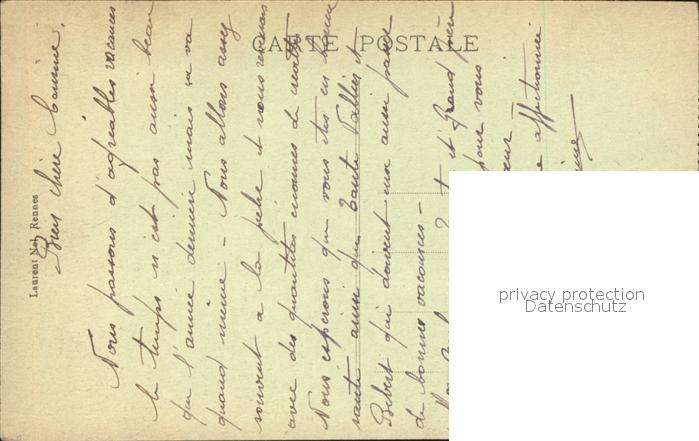 CARTE POSTALE
Laurent Nel, Rennes
Bien chère
Nous passons d'agréables vacances
le temps n'est pas aussi beau
que l'année dernière mais ça va
quand même - Nous allons assez
souvent à la pêche et nous revenons
avec des quantités énormes de
Nous espérons que vous êtes en bonne
santé ainsi que Tante
Bebert qui doivent eux aussi passer
de bonnes vacances -
et Grand père
pour vous
affectionnée
privacy protection
Datenschutz